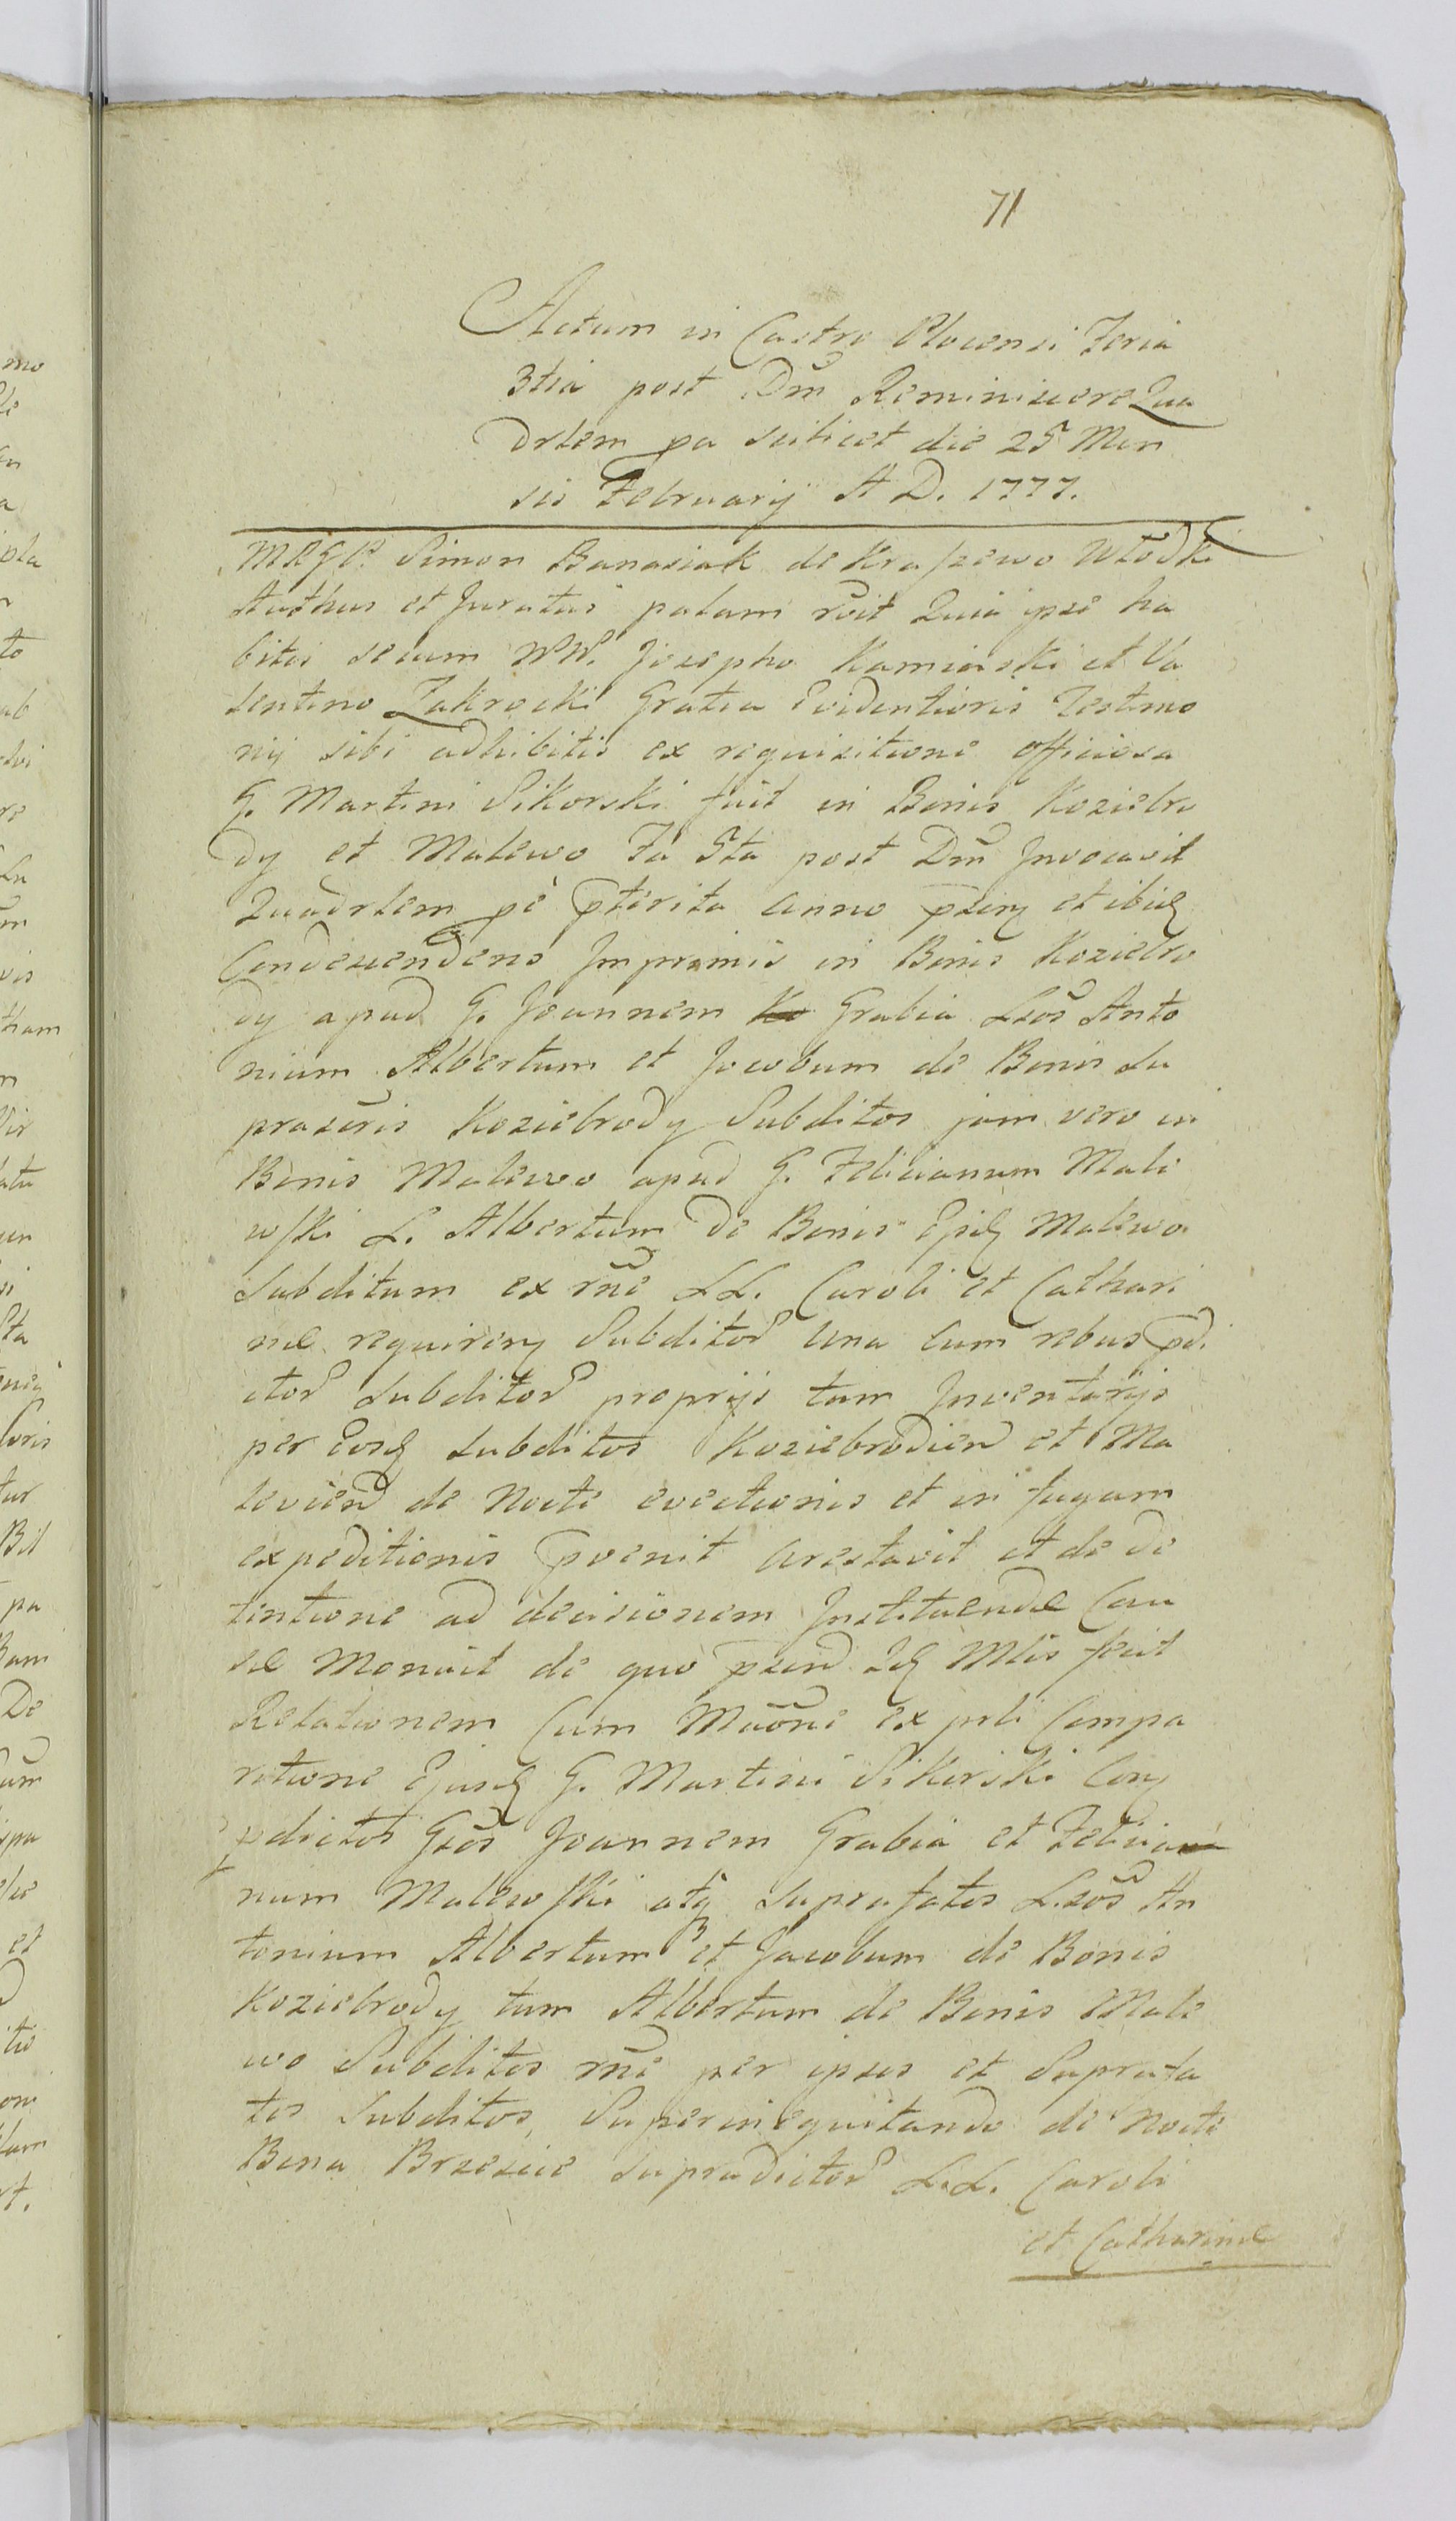 71
Actum in Castro Plocensi Feria
3tia post Dm̃ Reminiscere Qua
drlem pa scilicet die 25 Men
sis Februarij A D. 1777.
MRGP. Simon Banasiak de Kraszewo Włodki
Authus et Juratus palam rcũit Quia ipse ha
bitis secum NN. Josepho Kaminski et Va
lentino Zakrocki Gratia Evidentioris Testimo
nij sibi adhibitis ex requisitione officiosa
G. Martini Sikorski fuit in Bonis Koziebro
dy et Malewo Fa 5ta post Dm̃ Invocavit
Quadrlem pe pterita anno pnti et ibidq
Condescendens Imprimis in Bonis Koziebro
dy apud G. Joannem Grabia Lsos Anto
nium Albertum et Jacobum de Bonis Su
prascris Koziebrody Subditos jam vero in
Bonis Malewo apud G. Felicianum Male
wski L. Albertum de Bonis Ejsdq Malewo
Subditum ex rñe LL. Caroli et Cathari
nae requiren Subditor una cum rebus pdi
ctor Subditor proprijs tam Inventarijs
per Eosdq Subditos Koziebrodien et Ma
levien de Nocte evectionis et in fugam
expeditionis pvenit arestavit et de de
tentione ad decisionem Instituendae Cau
sae Monuit de quo psend Idq Mlis fecit
Relationem Cum Mãone ex prti Compa
ritione Ejusdq G. Martini Sikorski Con
pdictos Gsos Joannem Grabia et Felicia
num Malewski atq Suprafatos Lsos An
tonium Albertum et Jacobum de Bonis
Koziebrody tum Albertum de Bonis Male
wo Subditos rñe per ipsos et Suprafa
tos Subditos, Superinequitando de Nocte
Bona Brzescie Supradictor L.L. Caroli
et Catharinae